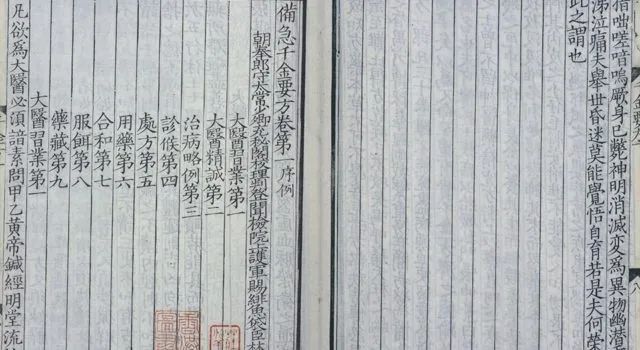 指咄嗟喑嗚厥身已斃神明消滅變為異物幽潛
涕泣痛夫舉世昏迷莫能覺悟自育若是夫何榮
此之謂也
備急千金要方卷第一序例
朝奉郎守太常少卿充秘閣校理判登聞檢院上護軍賜緋魚袋臣林
大醫習業第一
大醫精誠第二
治病略例第三
診候第四
處方第五
用藥第六
合和第七
服餌第八
藥藏第九
大醫習業第一
凡欲為大醫必須諳素問甲乙黃帝鍼經明堂流